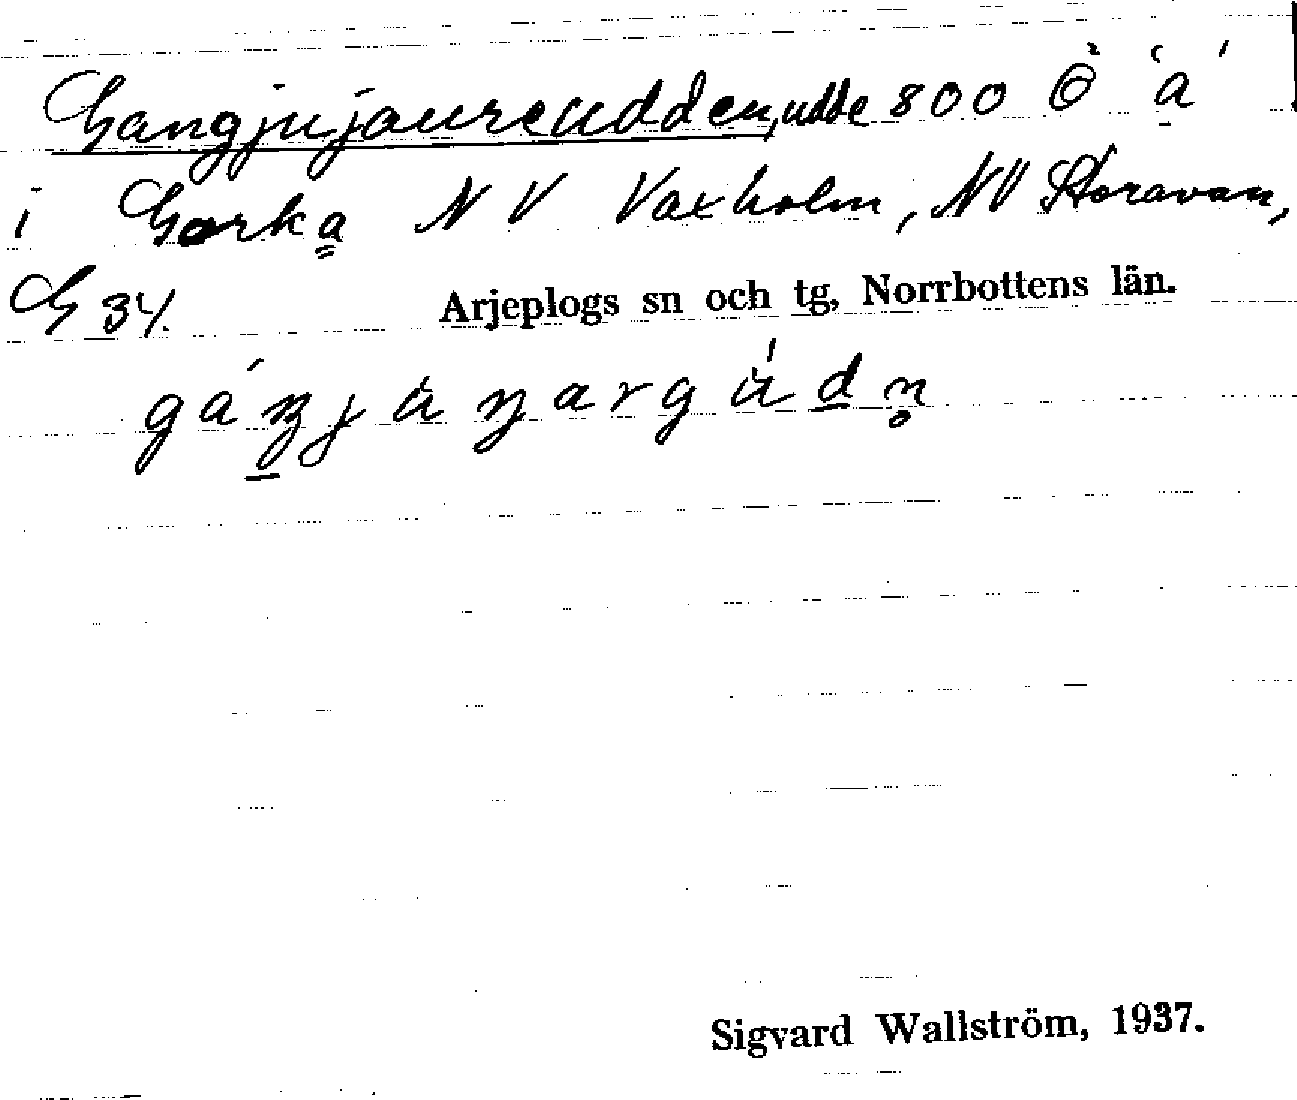 Gangjujaureudden, udde 800 Ö a
i Gorka NV Vaxholm, NV Storavan,
G 34. Arjeplogs sn och tg, Norrbottens län.
Sigvard Wallström, 1937.